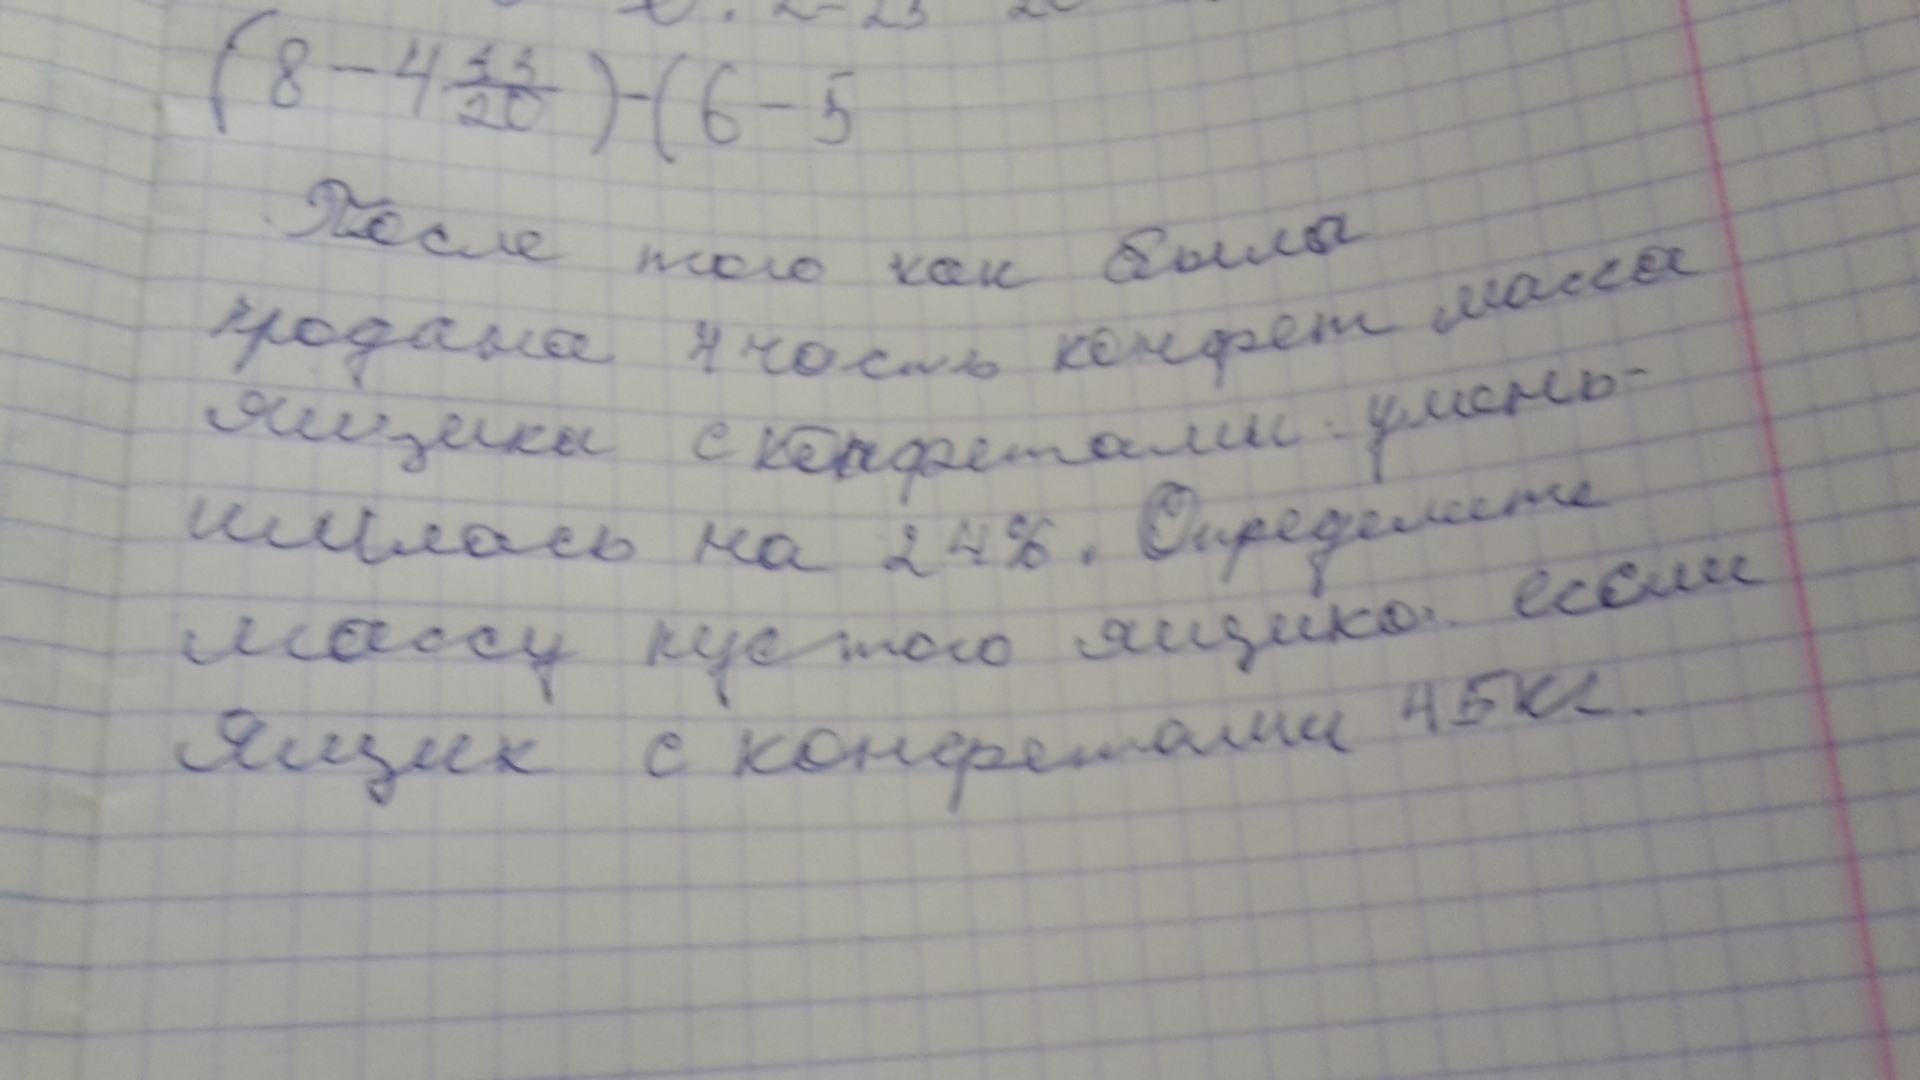 (8 - 4 33/20) - (6 - 5
После того как былы
продана 4 часть конфет масса
ящика с конфетами умень-
шилась на 24%. Определите
массу пустого ящика если
Ящик с конфетами 45кг.